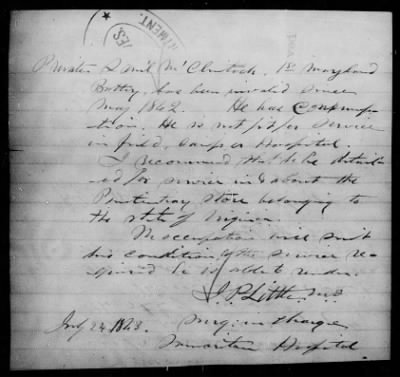 Private Saml McClintock, 1st Maryland
Battery, has been invalid since
May 1862. He has Consump-
tion. He is not fit for service
in field, camp or Hospital.
I recommend that he be detail-
ed for service in & about the
Penitentiary store belonging to
the state of Virginia.
The occupation will suit
his condition & the service re-
quired he is able to render.
J. P. Little, MD
July 24 1863. Surg in charge
Hospital.